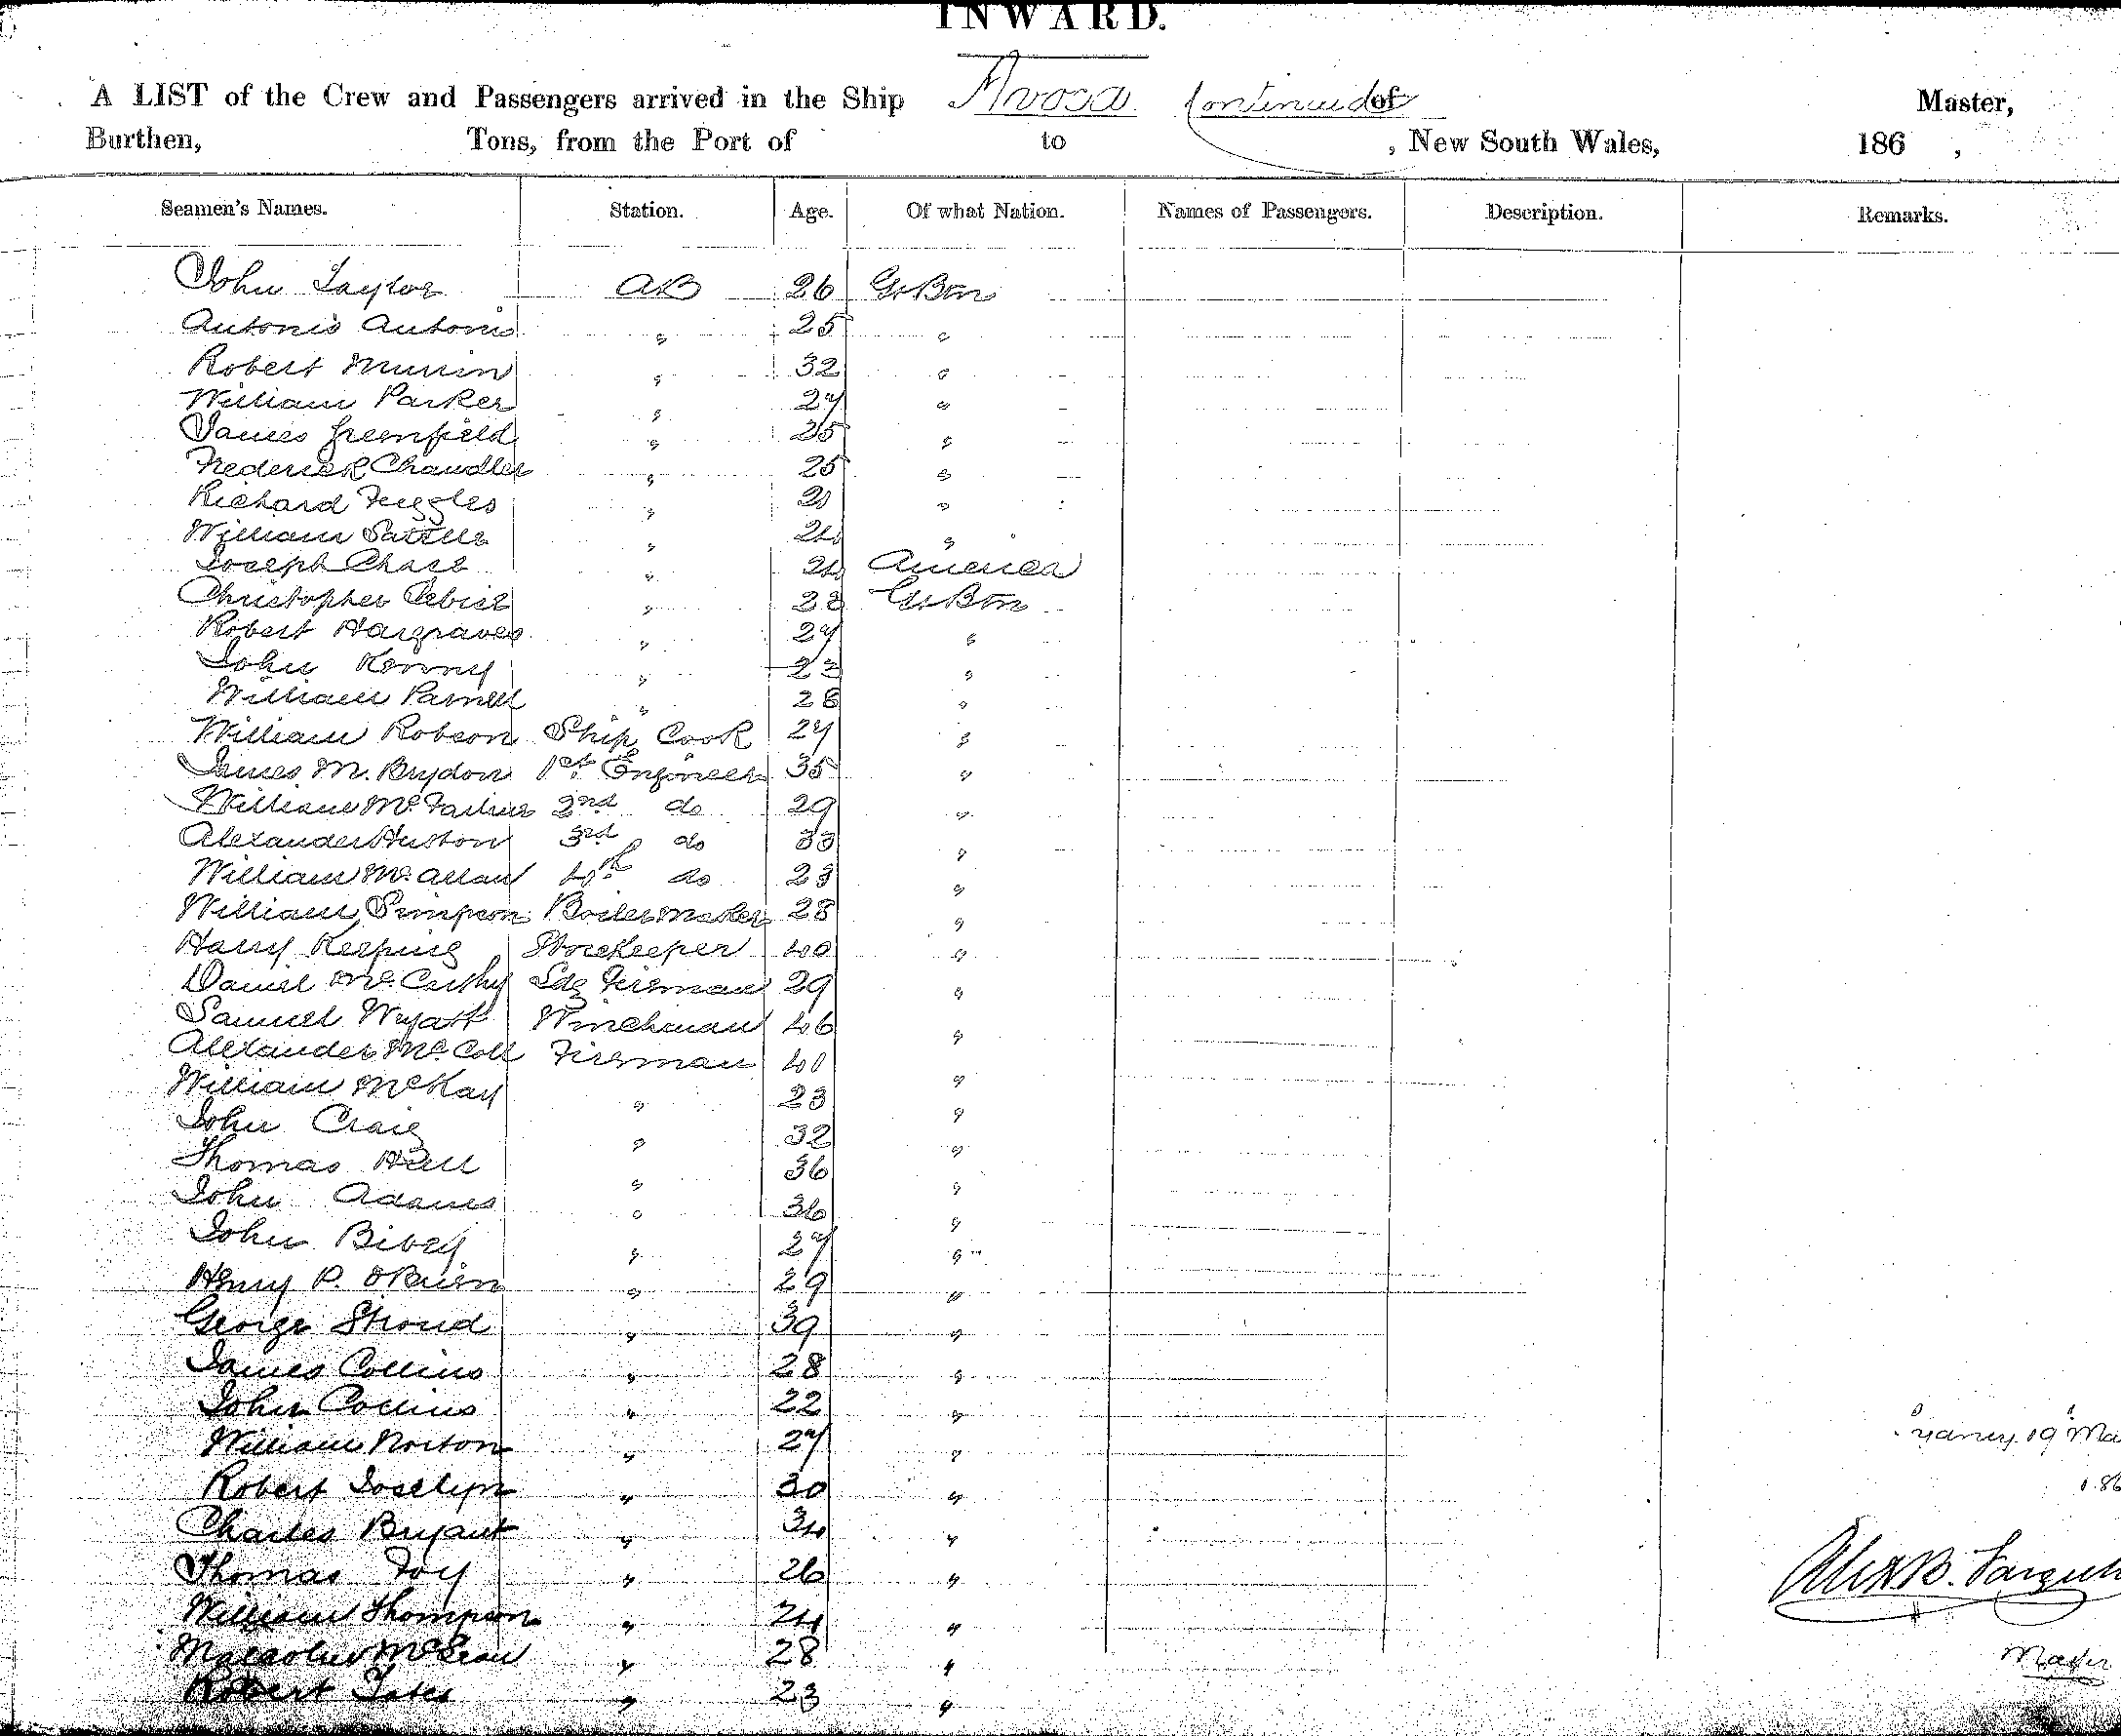 INWARD.
A LIST of the Crew and Passengers arrived in the Ship Avoca Continued of Master,
Burthen, Tons, from the Port of to , New South Wales, 186 ,
Seamen's Names. Station. Age. Of what Nation. Names of Passengers. Description. Remarks.
John Taylor AB 26 Gr Btn
Antonio Antonio " 25 "
Robert " 32 "
William Parker " 27 "
James Greenfield " 25 "
Frederick Chandler " 25 "
Richard Fuggles " 21 "
William " 24 "
Joseph Chase " 24 America
Christopher " 23 Gr Btn
Robert Hargraves " 27 "
John Kenny " 23 "
William Parnell " 28 "
William Robson Ship Cook 27 "
James M. Brydon 1st Engineer 35 "
William McFarline 2nd do 29 "
Alexander Huston 3rd do 33 "
William McAllan 4th do 23 "
William Simpson Boilermaker 28 "
Harry Keeping Storekeeper 40 "
Daniel McCarthy Ldg Fireman 29 "
Samuel Wyatt Winchman 46 "
Alexander McColl Fireman 40 "
William McKay " 23 "
John Craig " 32 "
Thomas Hall " 36 "
John Adams " 36 "
John Bibey " 27 "
Henry P. OBrien " 29 "
George Stroud " 39 "
James Collins " 28 "
John Collins " 22 "
William Norton " 27 "
Sydney 19 Ma
Robert Joselyn " 30 "
186
Charles Bryant " 34 "
Thomas Foy " 26 "
Alex B. Farquh
William Thompson " 24 "
Malcolm McLean " 28 "
Master
Robert " 23 "